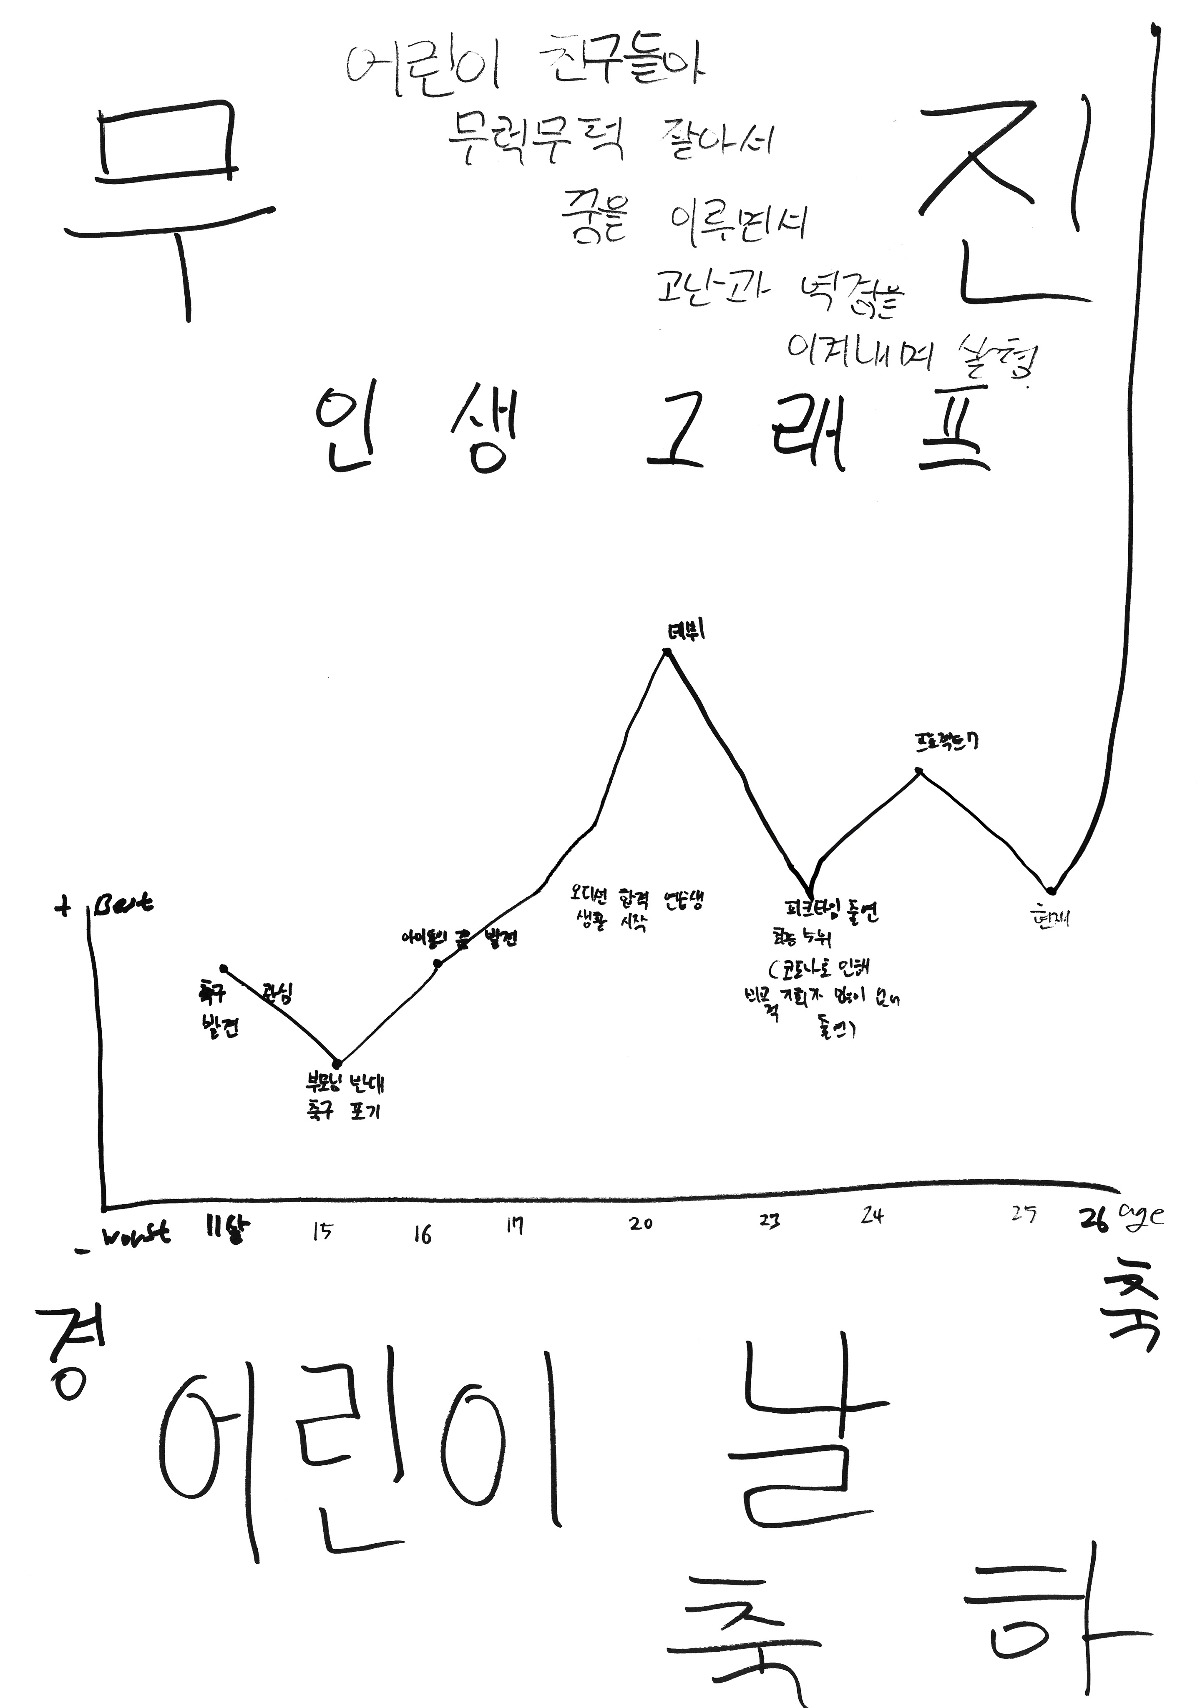 어린이 친구들아
무럭무럭 잘아서
꿈을 이루면서
고난과 역경을
이겨내며 실현
무 진
인생 그래프
데뷔
프로젝트7
+ Best
오디션 합격 연습생
생활 시작
피크타임 출연
활동
(코로나로 인해
기회가 많이 없어
출연)
현재
아이돌의 꿈 발견
축구 관심
발견
부모님 반대
축구 포기
- Worst 11살 15 16 17 20 23 24 25 26 age
경 축
어린이 날
축하